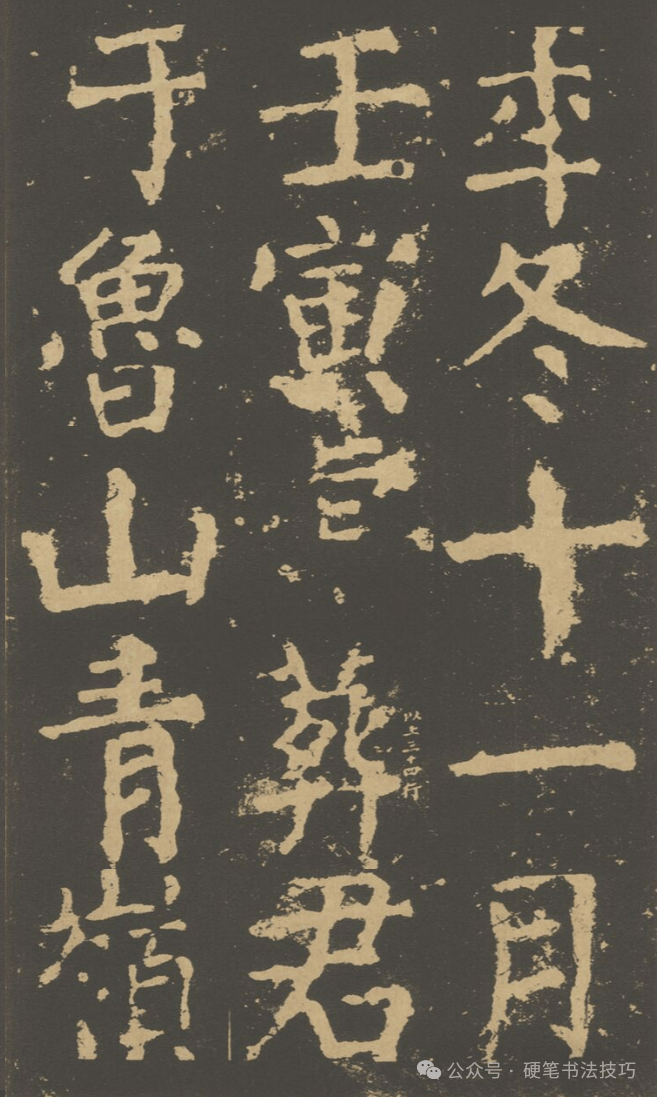 秊冬十一月
壬寅葬君
以上三十四行
于魯山青嶺
公众号·硬笔书法技巧